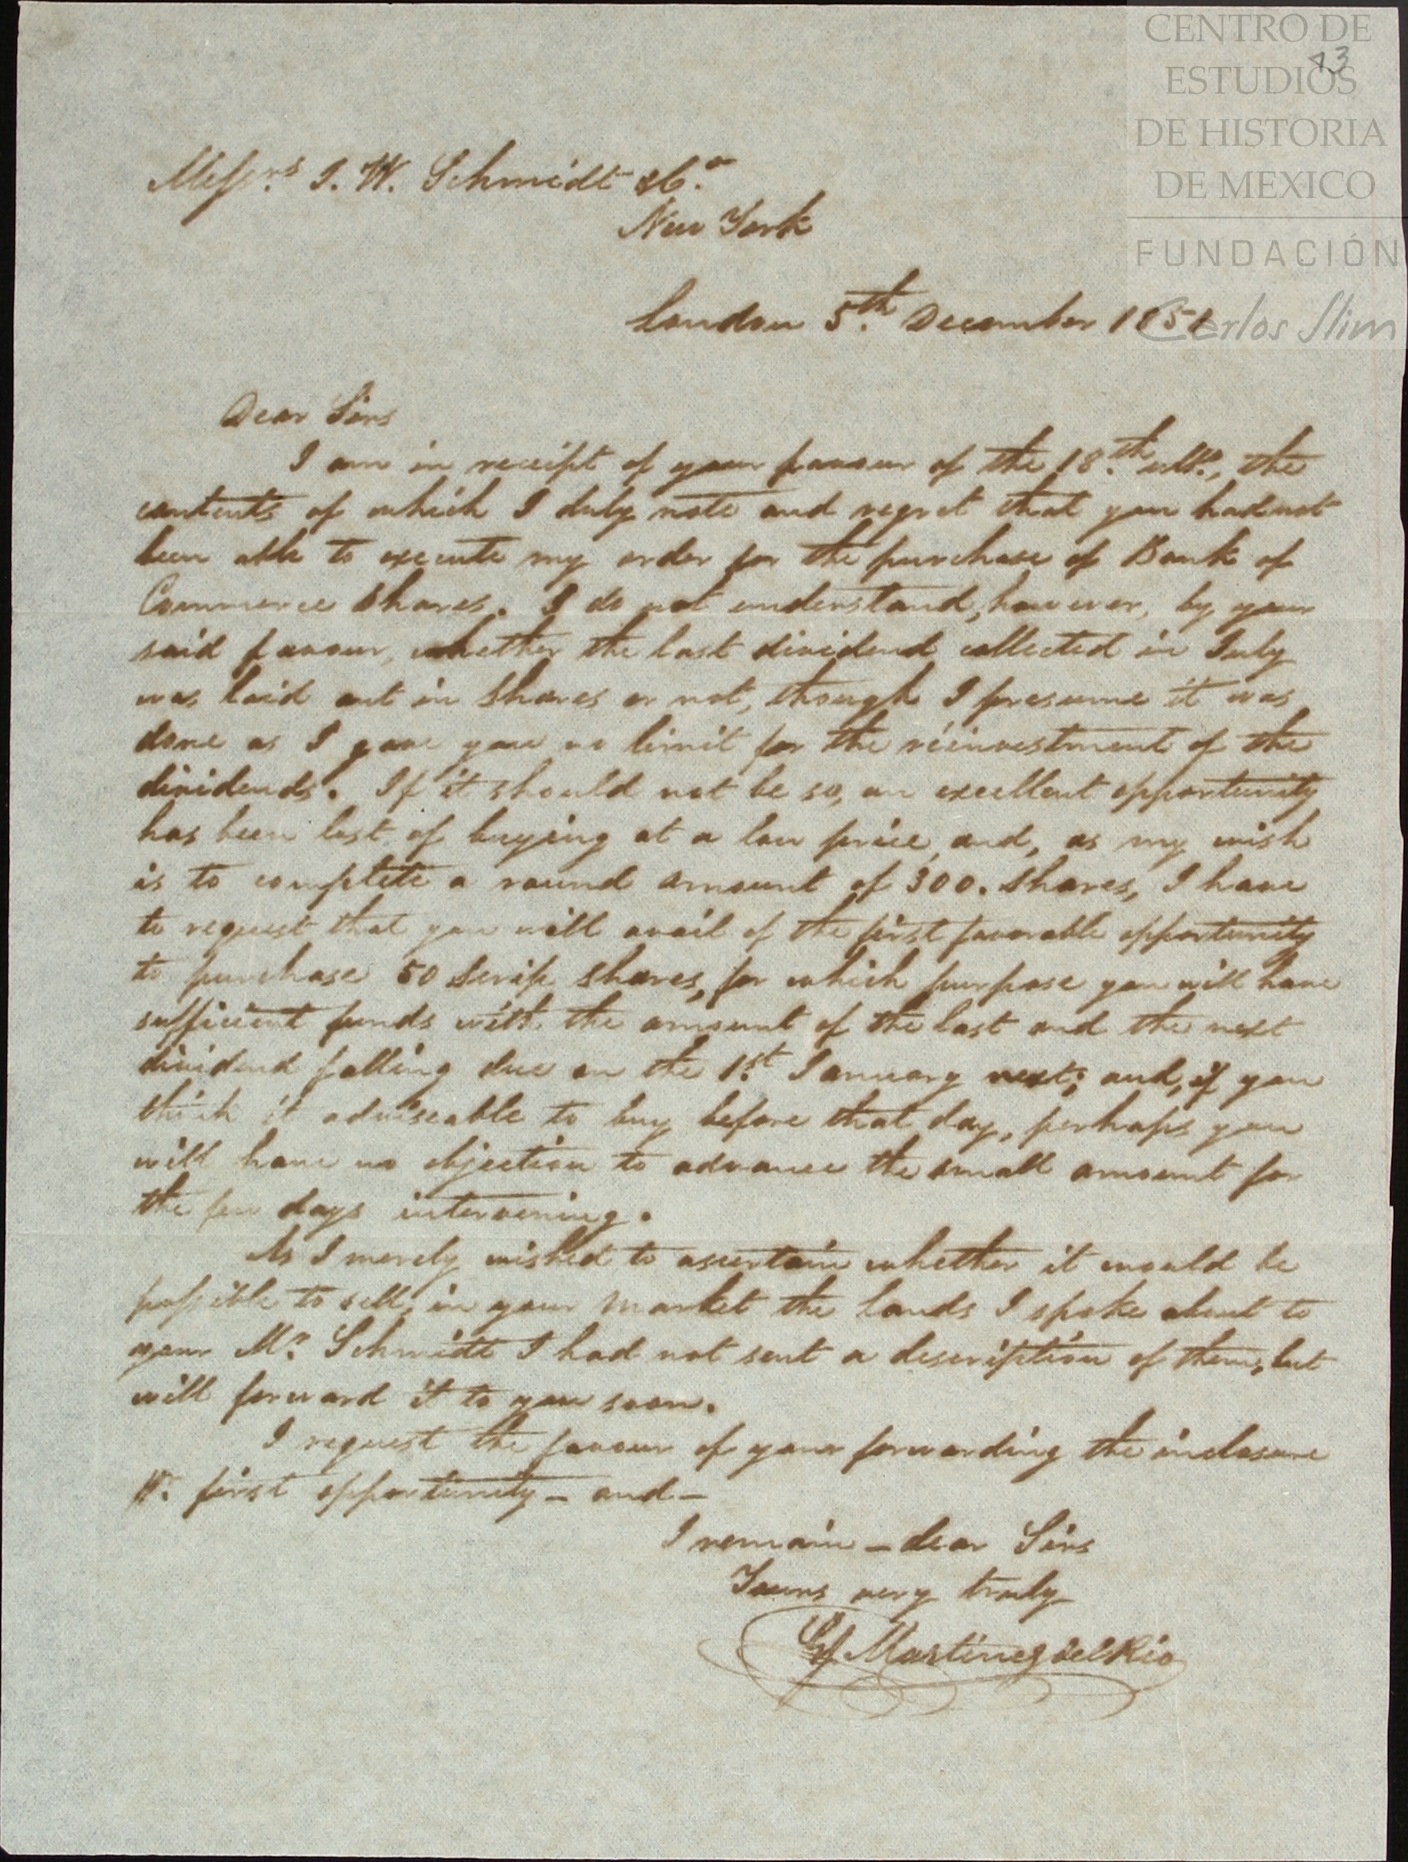 CENTRO DE
ESTUDIOS
DE HISTORIA
DE MEXICO
FUNDACIÓN
Carlos Slim
Messrs. J. W. Schmidt & Co.
New York
London 5th. December 1851
Dear Sirs
I am in receipt of your favour of the 18th. ulto., the
contents of which I duly note and regret that you had not
been able to execute my order for the purchase of Bank of
Commerce Shares. I do not understand, however, by your
said favour, whether the last dividend collected in July
was laid out in Shares or not, though I presume it was
done as I gave you no limit for the reinvestment of the
dividends. If it should not be so, an excellent opportunity
has been lost of buying at a low price, and, as my wish
is to complete a round amount of 300. Shares, I have
to request that you will avail of the first favorable opportunity
to purchase 50 Scrip Shares, for which purpose you will have
sufficient funds with the amount of the last and the next
dividend falling due on the 1st. January next; and, if you
think it adviseable to buy before that day, perhaps you
will have no objection to advance the small amount for
the few days intervening.
As I merely wished to ascertain whether it would be
possible to sell, in your market the lands I spoke about to
your Mr. Schmidt I had not sent a description of them, but
will forward it to you soon.
I request the favour of your forwarding the inclosure
pr. first opportunity - and -
I remain - dear Sirs
Yours very truly
Martinez del Rio